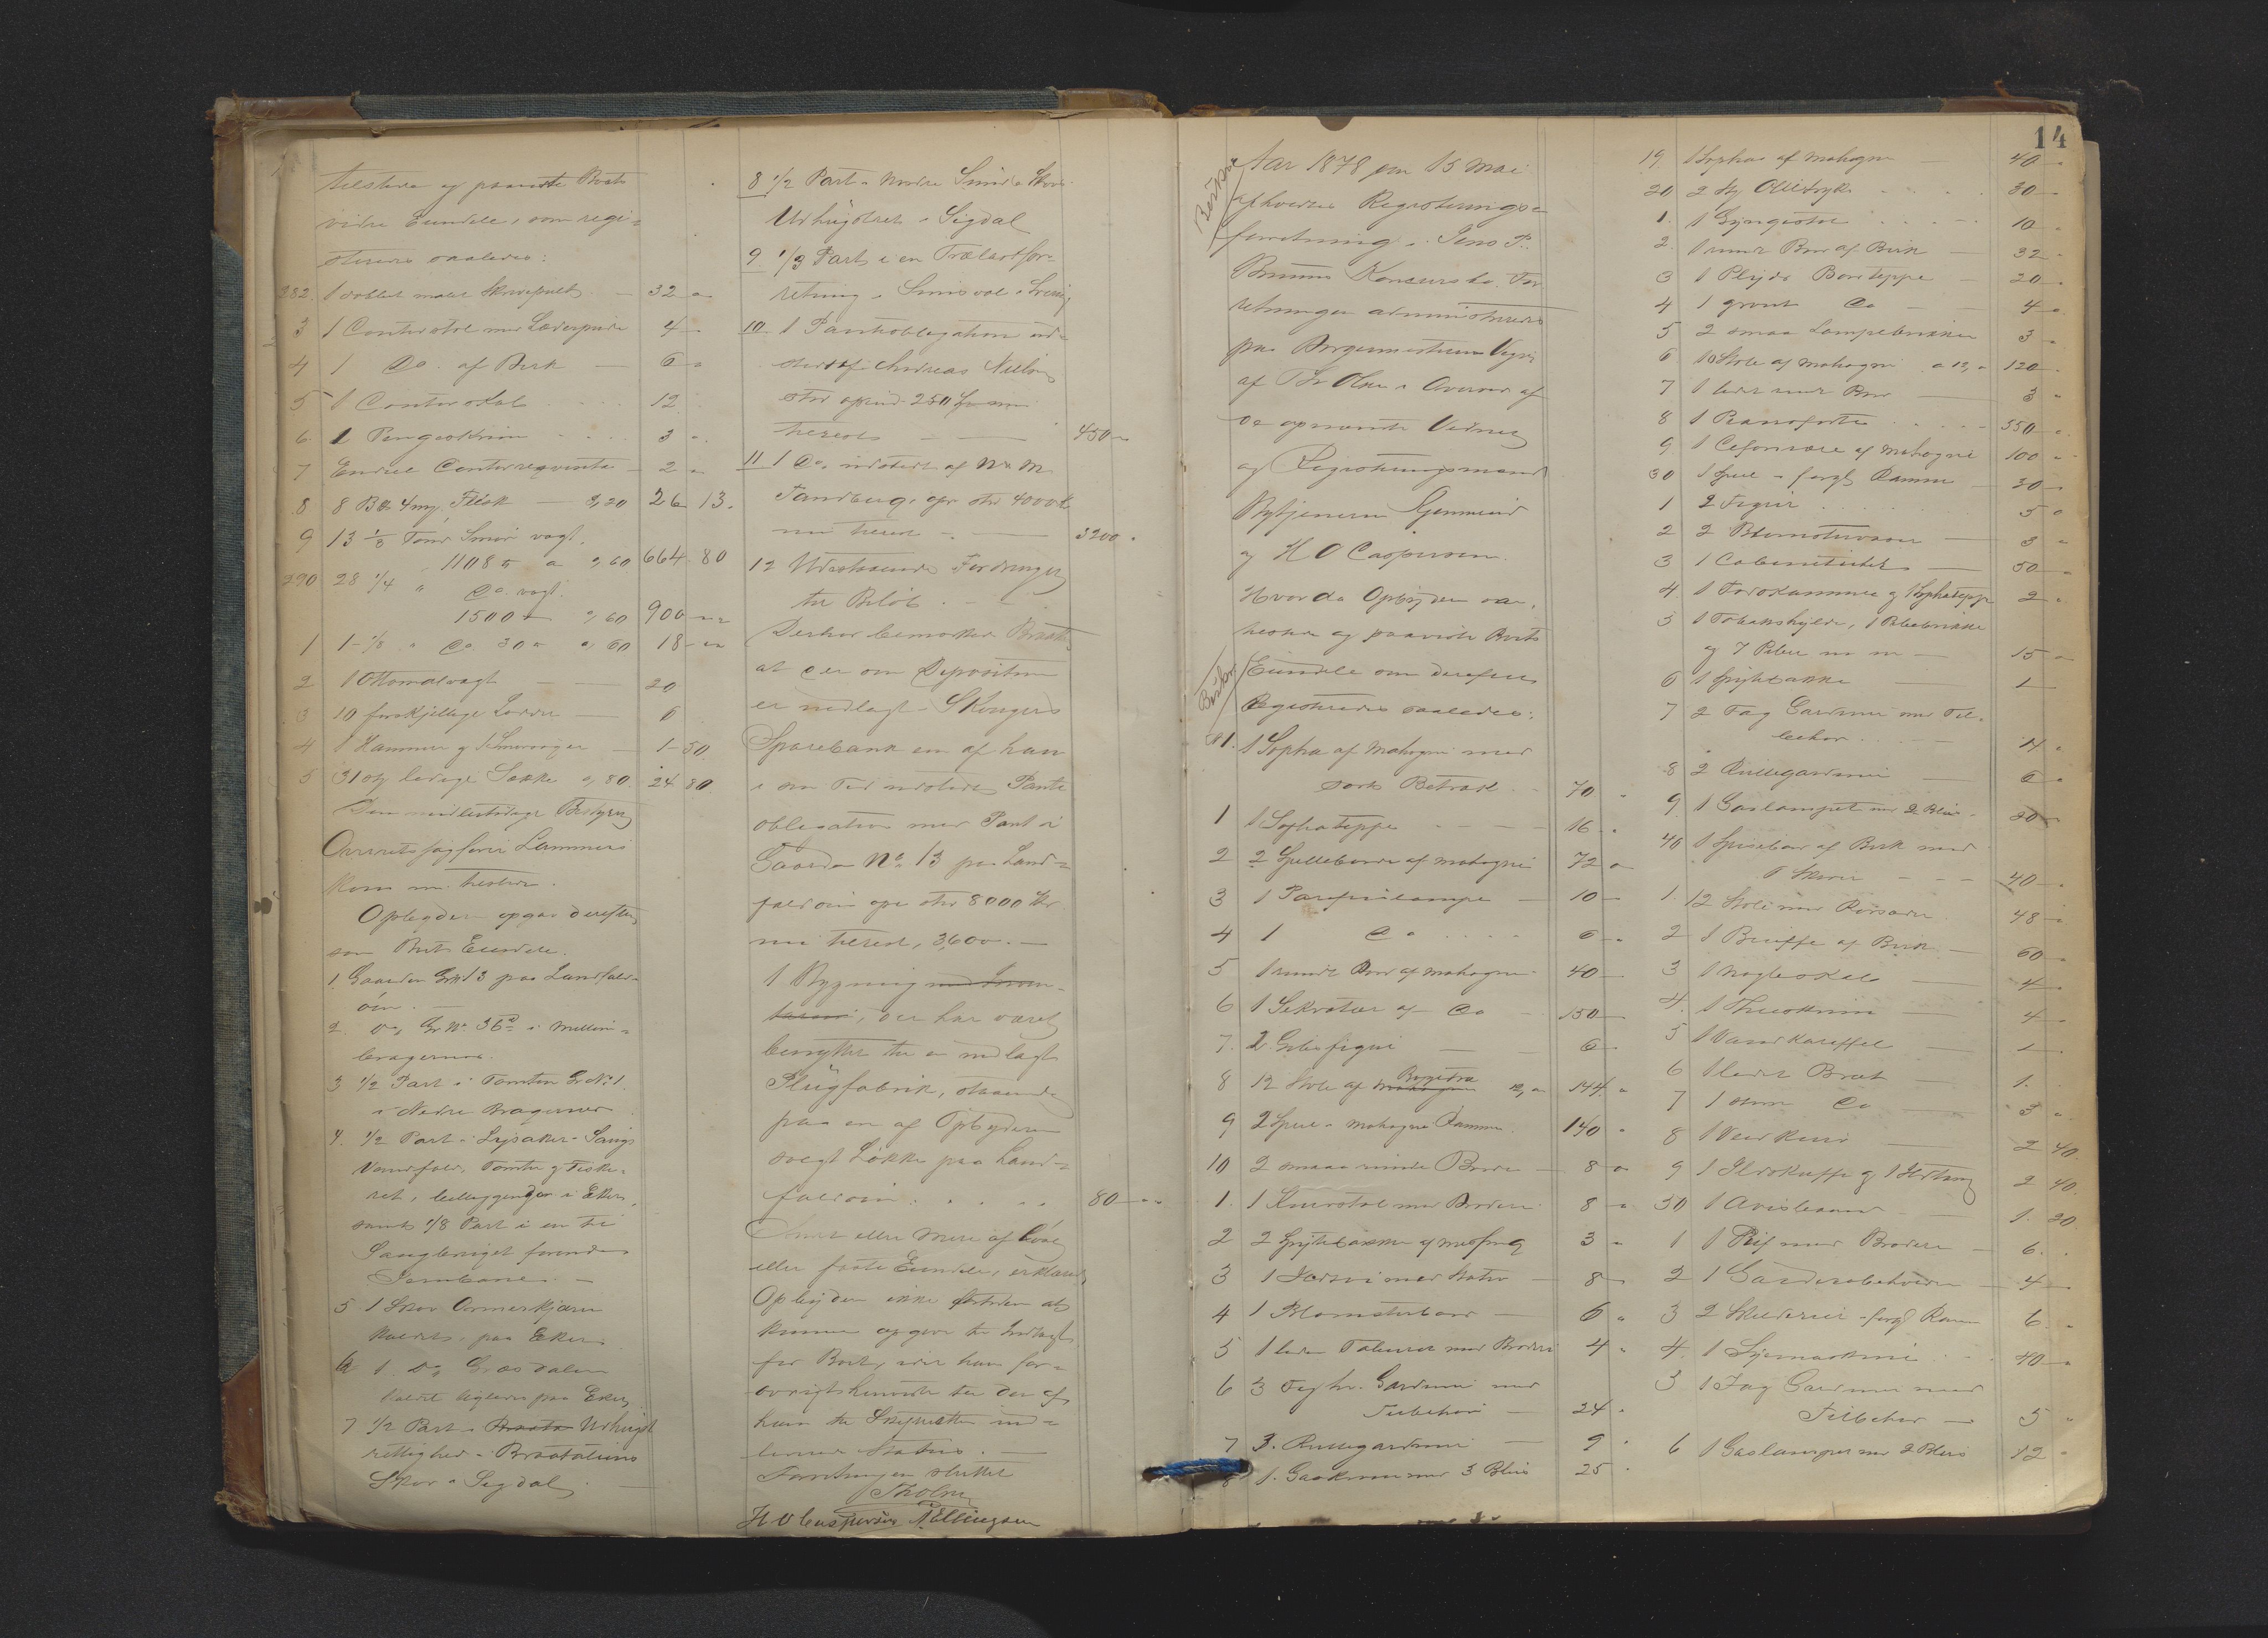 tilstede og paaviste Boets
vidre Eiendele, som regi=
streredes saaledes:
282. 1 dobbel malet Skrivepult — 32 "
3 1 Contorstol med Læderpude 4 "
4 1 Do. af Birk — 6 "
5 1 Contorskab 12
6 1 Pengeskrin 3 "
7 Endeel Contorreqvisita — 2 "
8 8 B 4 my Flesk — 3,20 26 13.
9 13 1/8 Tønde Smør vægt.
1108 lb a ",60 664 80
290 28 1/4 " Do. vægt.
1500 " ",60 900 "
1 1 1/8 " Do 30 " a 60 18 "
2 1 Ottomalvægt — 20
3 10 forskjellige Lodder — 6
4 1 Hammer og 1 — 1 50
5 31 stk ledige Sække a ,80. 24 80
Den midlertidige Bestyrer
Overretssagfører Lammers
kom nu tilstede.
Opbyder opgav derefter
som Boets Eiendele.
1. Gaarden Gr No 13 paa Landfald=
øen. —
2. Do, Gr No 36 i Mellem=
bragernes.
3 1/2 Part i Tomten Gr No 1
i Nedre Bragernes
4. 1/2 Part i Lysaker Saugs
Vandfald, Tomter og Fiske=
ret, beliggende i Eker,
samt 1/8 Part i en til
Saugbruget førende
Jernbane. —
5 1 Skov Ormerkjæren
kaldet, paa Eker.
6 1 Do, Græsdalen
kaldt ligledes paa Eker
7 1/2 Part i Braata Udhugst
rettighed i Braataliens
Skov i Sigdal —
8 1/2 Part i Nordre Skov
Udhugstret i Sigdal
9 1/3 Part i en Trælastfor=
retning i Sverig
10 1 Pantobligation ud=
stedt af Andreas Nielsen
stor oprind. 250
tilrest — 450 "
11 1 Do. udstedt af N. M.
Tandberg, opr stor 4000 Kr
nu tilrest — 3200 "
12 Udestaaende Fordringer
til Beløb. —
Derhos bemærkes
at der som Depositum
er nedlagt i S Kongerd
Sparebank en af ham
i sin Tid udstedt Pante
obligation med Pant i
Gaarden No 13 paa Land=
faldøen opr stor 8000 Kr
nu tilrest, 3,600. —
1 Bygning med Inven=
tarium, der har været
benyttet til en nedlagt
Plugfabrik, staaende
paa en af Opbyderen
Løkke paa Land=
faldøen 80 "
eller mere af Løse
eller faste Eiendele, erklærede
Opbyderen ikke at
kunne opgive til Indtægt
for Boet, idet han for=
øvrigt henviste til den af
ham til Skifteretten ind=
leverede Status. —
Forretningen sluttet
Th Olsen
H O Caspersen N Ellingsen
14
Aar 1878 den 15 Mai
afholdtes Registrerings=
forretning i Jens P.
Konkursbo. For
retningen administreredes
paa Borgermesterens Vegne
af Th Olsen i Overvær af
de opnævnte Vidner
og Registreringsmænd
Bytjenerne
og H O Caspersen.
Hvorda Opbyderen var
tilstede og paaviste Boets
Eiendele som derefter
Registreredes saaledes:
1. 1 Sopha af Mahogni med
sort Betræk 70 "
1 1 Sophateppe 16 "
2 2 Spilleborde af Mahogni 72 "
3 1 Parafinlampe — 10 —
4 1 Do 6 "
5 1 rundt Bord af Mahogni 40 —
6 1 Sekretær af Do 150 —
7. 2 Gibsfigurer — 6 —
8 12 Stole af Mahogni 12, " 144. "
9 2 Speile i Mahogni Ramme. 140 "
10 2 smaa runde Borde — 8 "
1. 1 Lænestol med Broderi 8 "
2 2 Spyttebakker af Messing 3 "
3 1 8 "
4 1 Blomsterbord — 6 "
5 1 liden Taburet med Broderi 4 "
6 3 Fag hv. Gardiner med
Tilbehør — 24 "
7 3. Rullegardiner — 9 "
8 1. Gaskrone med 3 Blus 25 "
19. 1 Sopha af Mahogni 40 "
20 2 stk Olietryk 30 —
1. 1 Gyngestol 10 "
2. 1 rundt Bord af Birk — 32 "
3 1 Plyds Bordteppe — 20 "
4 1 grønt Do — 4 "
5 2 smaa Lampebrikker 3 "
6 10 Stole af Mahogni a 12, " 120 "
7 1 lidet rundt Bord — 3 "
8 1 Pianoforte 350 "
9 1 Cifoniere af Mahogni 100 "
30 1 Speil i forgl. Ramme — 30 "
1 2 Figurer 5 "
2 2 Blomstervaser — 3 "
3 1 Cabinetsstykke — 50 "
4 1 Fodskammel og 1 Sophateppe 2 "
5 1 Tobakshylde, 1 Pibebrikke
og 7 Piber m m — 15 "
6 1 Spyttebakke — 1 —
7 2 Fag Gardiner med Til=
behør 14 "
8 2 Rullegardiner — 6 "
9. 1 Gaslampet med 2 Blus 20 "
40 1 Spisebord af Birk med
6 Skiver — 40 "
1. 12 Stole med Rørsæder 48 "
2 1 Büffe af Birk — 60 "
3 1 Nøgleskab — 4 "
4. 1 Theeskrin — 4 "
5 1 Vandkaraffel — 1 —
6 1 lidet Bræt — 1.
7 1 stor Do — 3 "
8 1 Vedkurv — 2 40
9 1 Ildskuffe og 1 Ildtang 2 40.
50 1 Avisbaand — 1. 20
1 1 Pif med Broderi — 6.
2 1 Garderobeholder — 4 —
3 2 Skilderier i forgl Ramme 6 "
4. 1 Symaskine 40 "
5 1 Fag Gardiner med
Tilbehør — 5 "
6 1 Gaslampet med 2 Blus 12 "